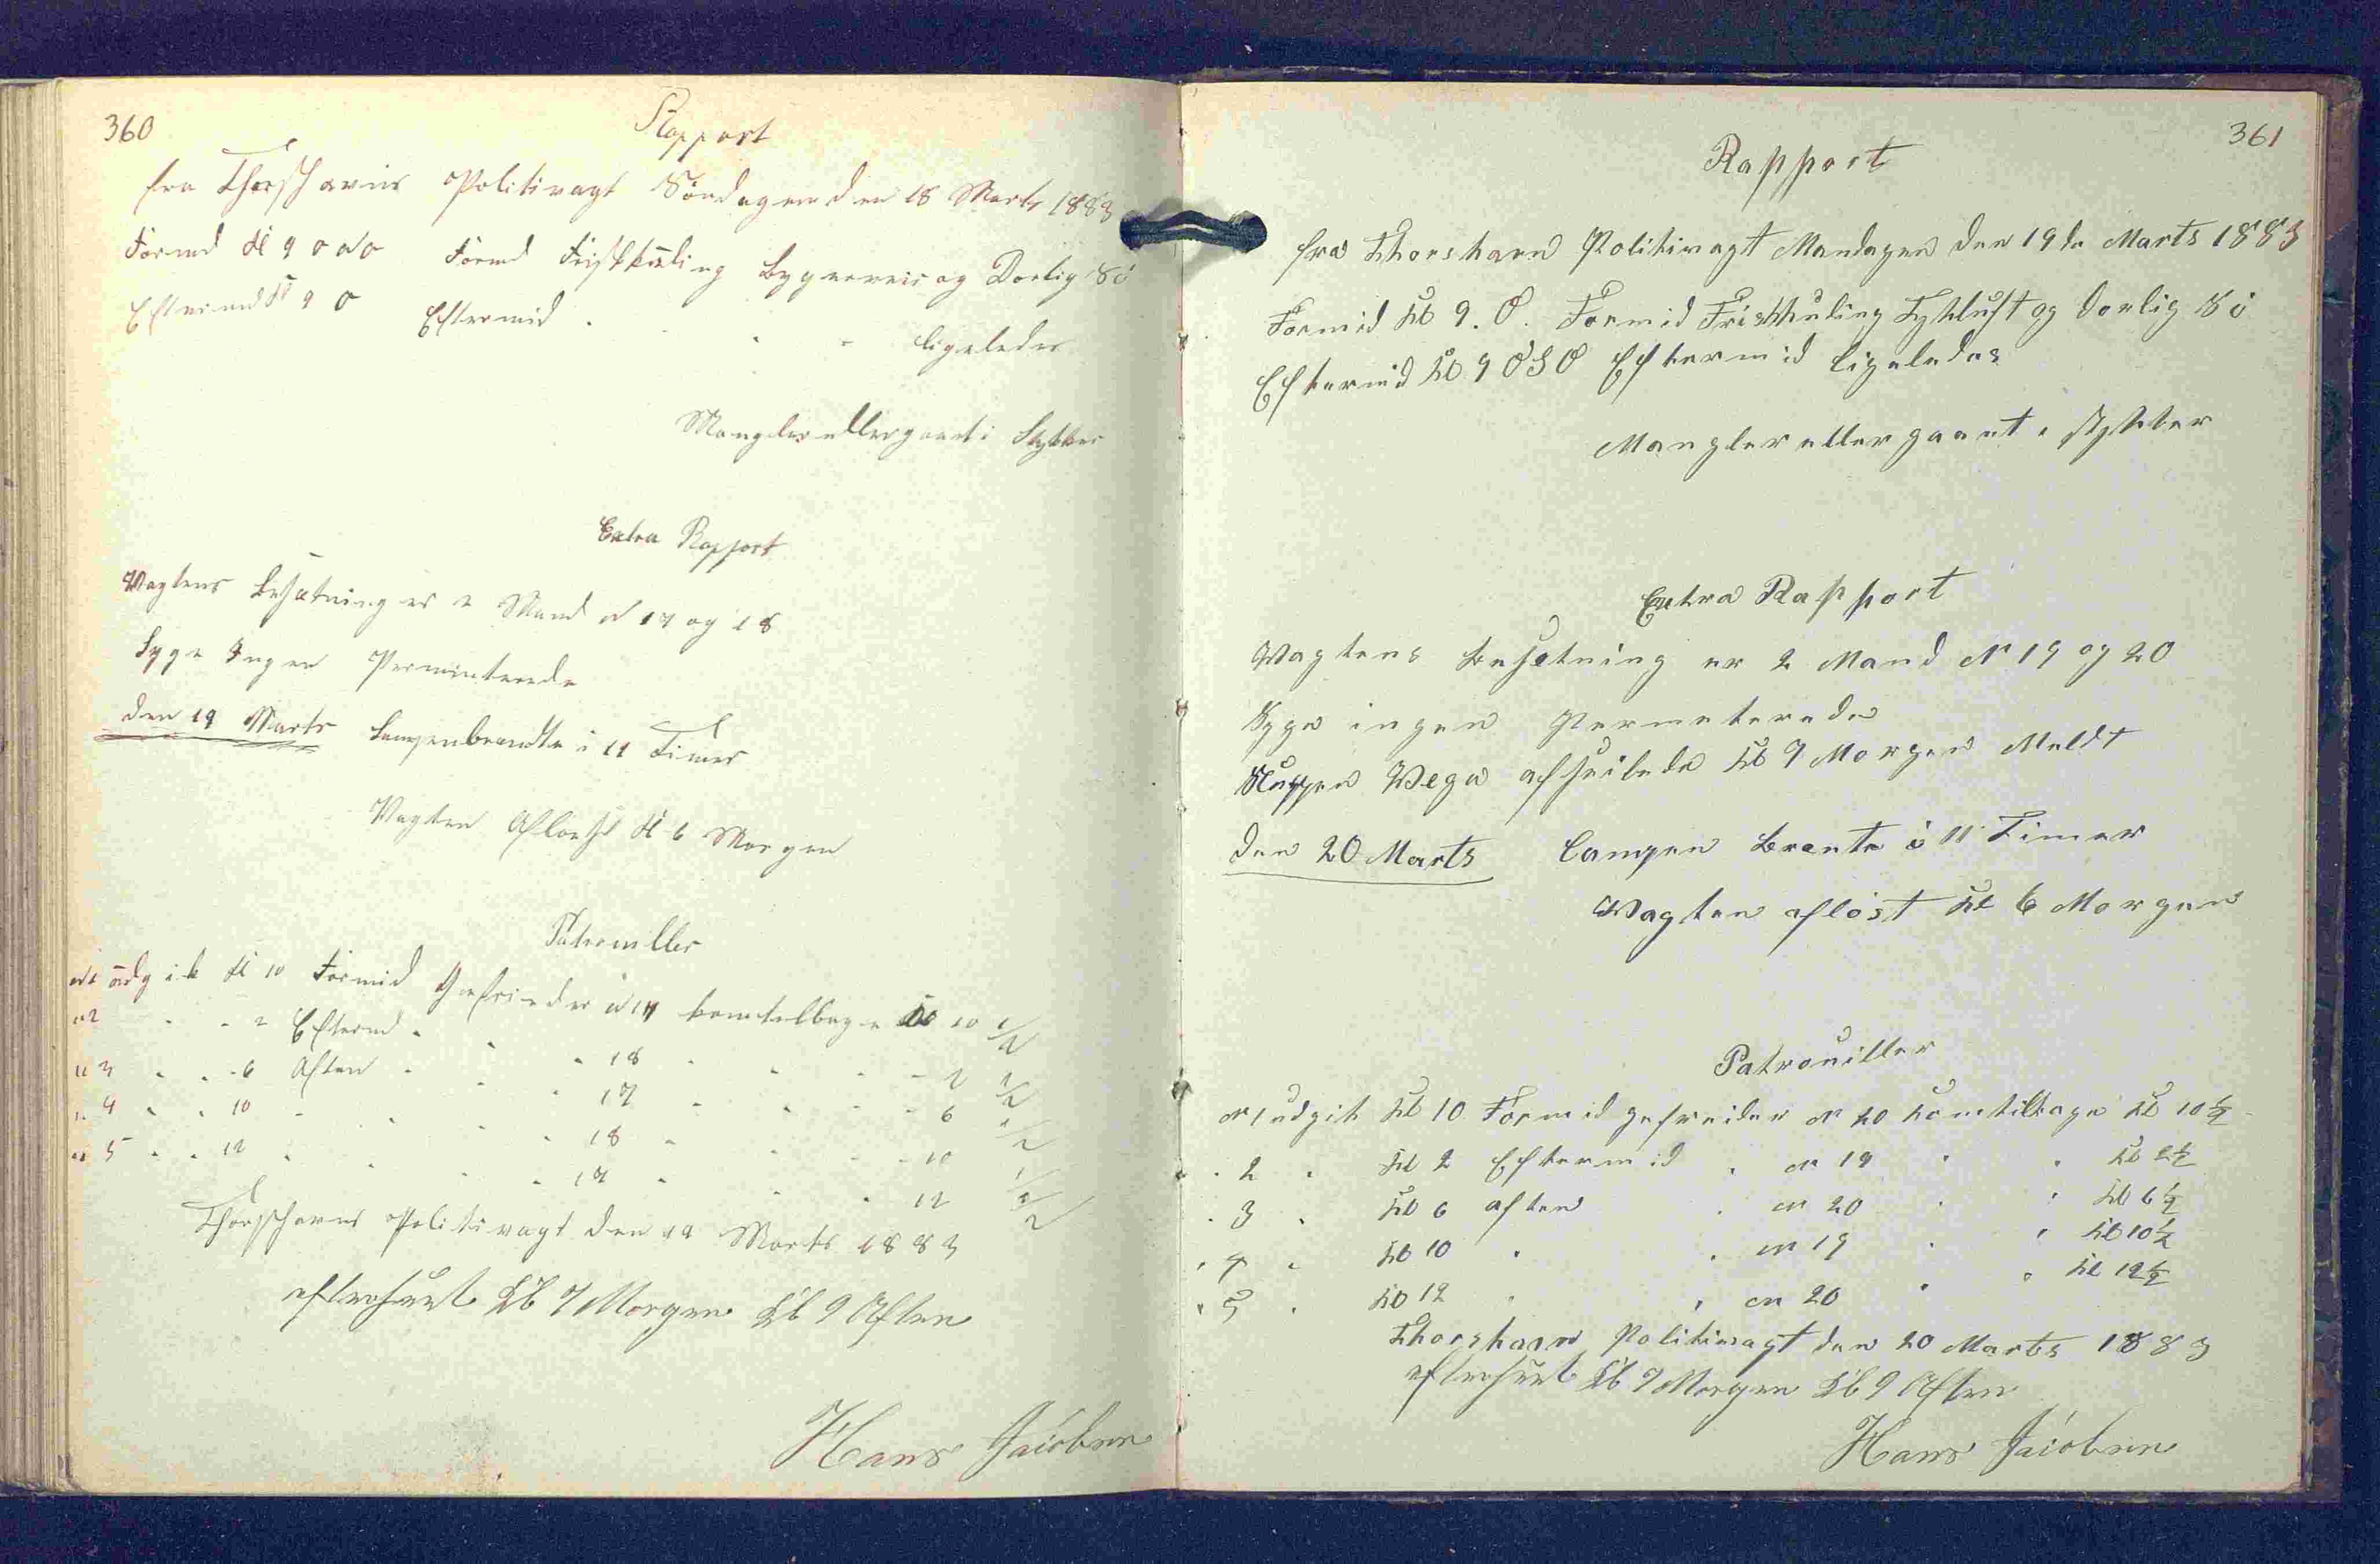 360
Rapport
fra Thorshavns Politivagt Søndagen den 18 Marts 1883
Formd Kl 9 O
Formd Friskkuling Bygeveir og Dorlig Sö
Eftermd Kl 9 O
Eftermid . . - ligeledes
Mangler eller gaaet i Stykker
Extra Rapport
Vagtens besætning er 2 Mand N 17 og 18
Syge Ingen Perminterede
den 19 Marts Lampen brendte i 11 Timer
Vagten Afløst Kl 6 Morgen
Patrouiller
N 1 udgik Kl 10 Formid Gefreider N 17 kom tilbage Kl 10 1/2
" 2 " " 2 Eftermd " " " 18 " " " 2 1/2
" 3 " " 6 Aften " " " 17 " " " 6 1/2
" 4 " " 10 " " " " 18 " " " 10 1/2
" 5 " " 12 " " " " 17 " " " 12 1/2
Thorshavns Politivagt den 19 Marts 1883
efterseet Kl 7 Morgen Kl 9 Aften
Hans Jacobsen
361
Rapport
fra Thorshavn Politivagt Mandagen den 19de Marts 1883
Formid Kl 9. O. Formid Friskkuling Tykluft og dorlig Sö
Eftermid Kl 9 OSO Eftermid ligeledes
Mangler eller gaaet i stykker
Extra Rapport
Wagtens besetning er 2 Mand N 19 og 20
Syge ingen Permeterede
Sluppen Wega afseilede Kl 9 Morgen Meldt
den 20 Marts Lampen Brente i 11 Timer
Wagten aflöst Kl 6 Morgen
Patrouiller
N 1 udgik Kl 10 Formid gefreider N 20 kom tilbage Kl 10 1/2
" 2 " Kl 2 Eftermid " N 19 " " Kl 2 1/2
" 3 " Kl 6 aften " N 20 " " Kl 6 1/2
" 4 " Kl 10 " " N 19 " " Kl 10 1/2
" 5 " Kl 12 " " N 20 " " Kl 12 1/2
Thorshavn Politivagt den 20 Marts 1883
efterseet Kl 7 Morgen Kl 9 Aften
Hans Jacobsen